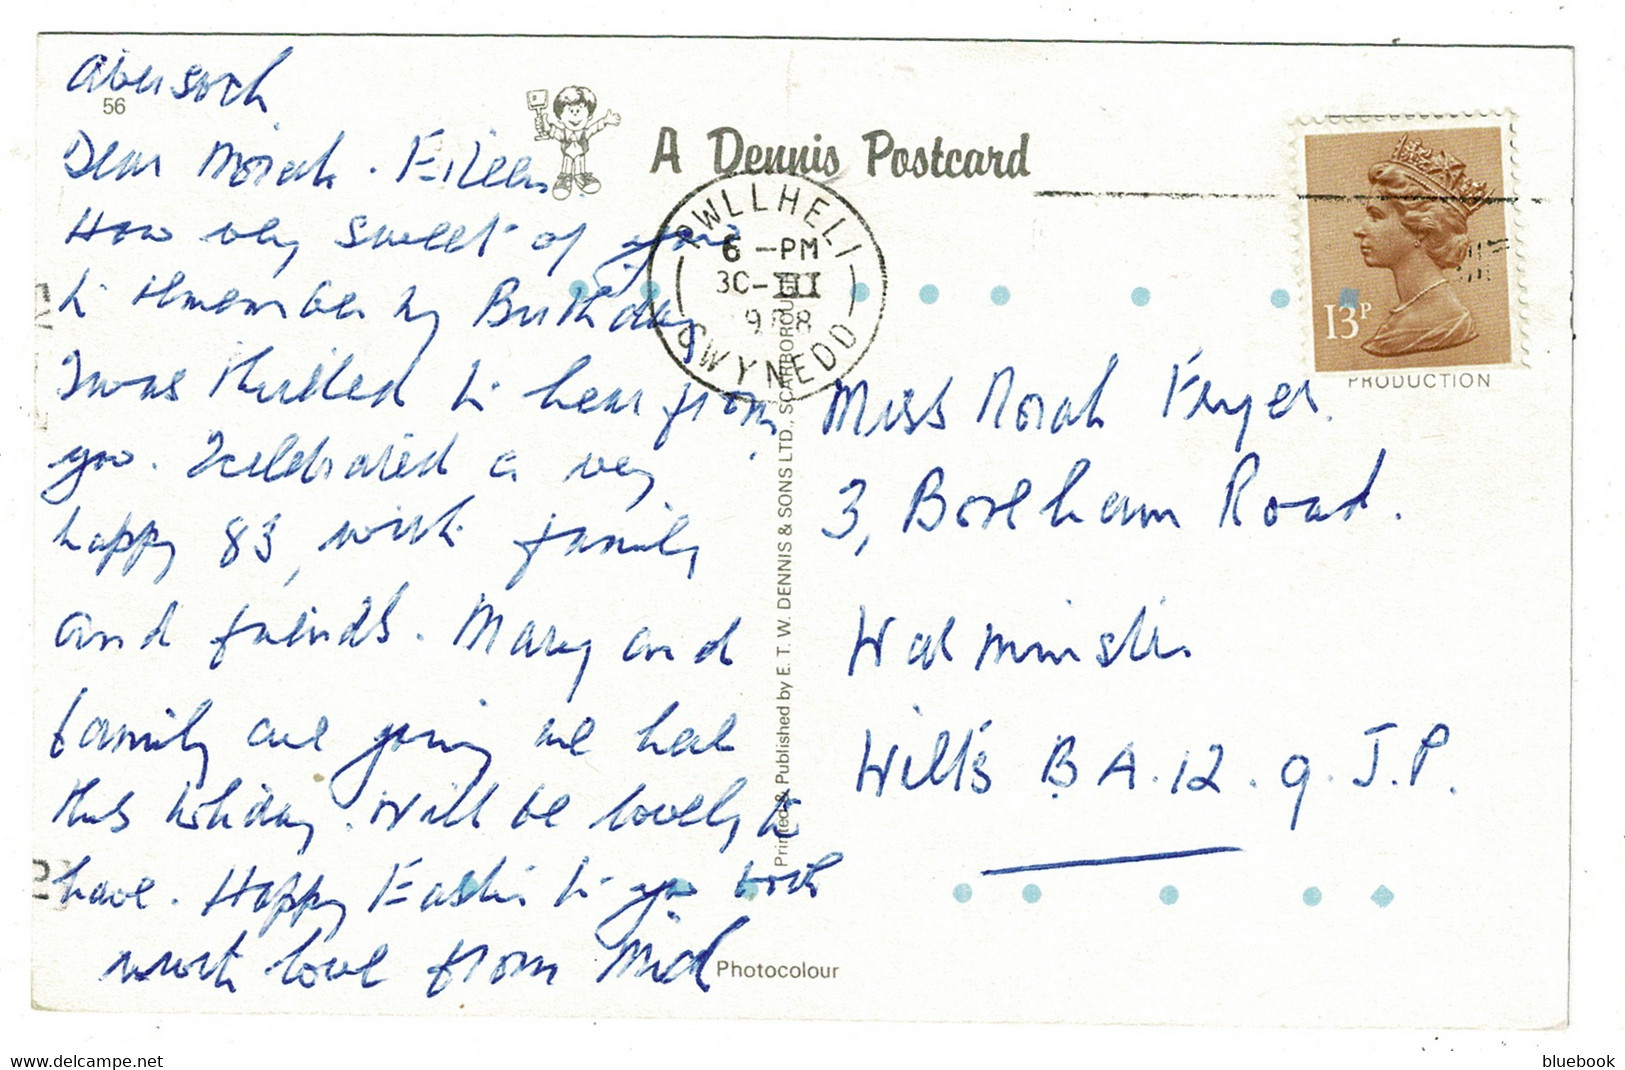 Abersoch
56
Dear Norah. Eileen
How very sweet of you
to remember my Birthday
I was thrilled to hear from
you. I celebrated a very
happy 83, with family
and friends. Mary and
family are joining me here
this holiday. Will be lovely to
have. Happy Easter to you both
much love from Mid
A Dennis Postcard
PWLLHELI
6-PM
30-III
GWYNEDD
13P
PRODUCTION
Miss Norah Fryer.
3, Boreham Road.
Warminster
Wilts BA.12.9.J.P.
Printed & Published by E. T. W. DENNIS & SONS LTD., SCARBOROUGH
Photocolour
delcampe.net
bluebook